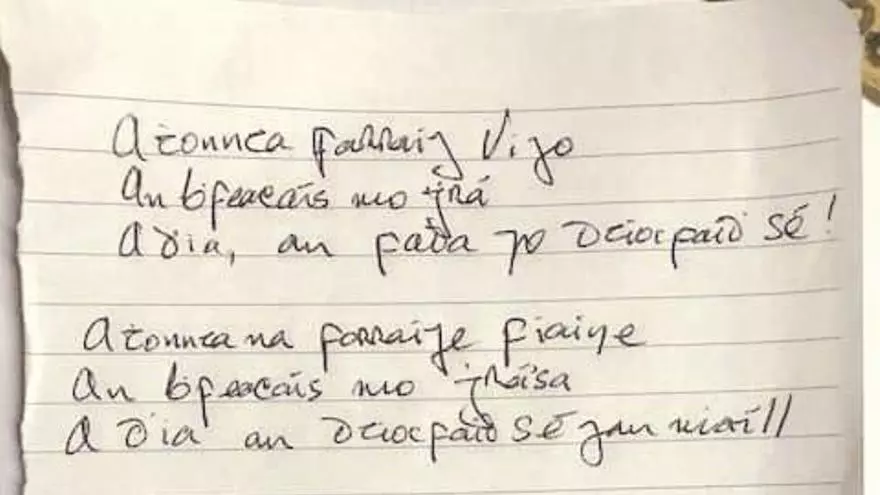 A ṫonnta farraig Vigo
An bfeacaís mo ġrá
A Ḋia, an fada go dtiocfaiḋ sé!
A ṫonnta na farraige fiaine
An bfeacaís mo ġrása
A Ḋia an dtiocfaiḋ sé gan